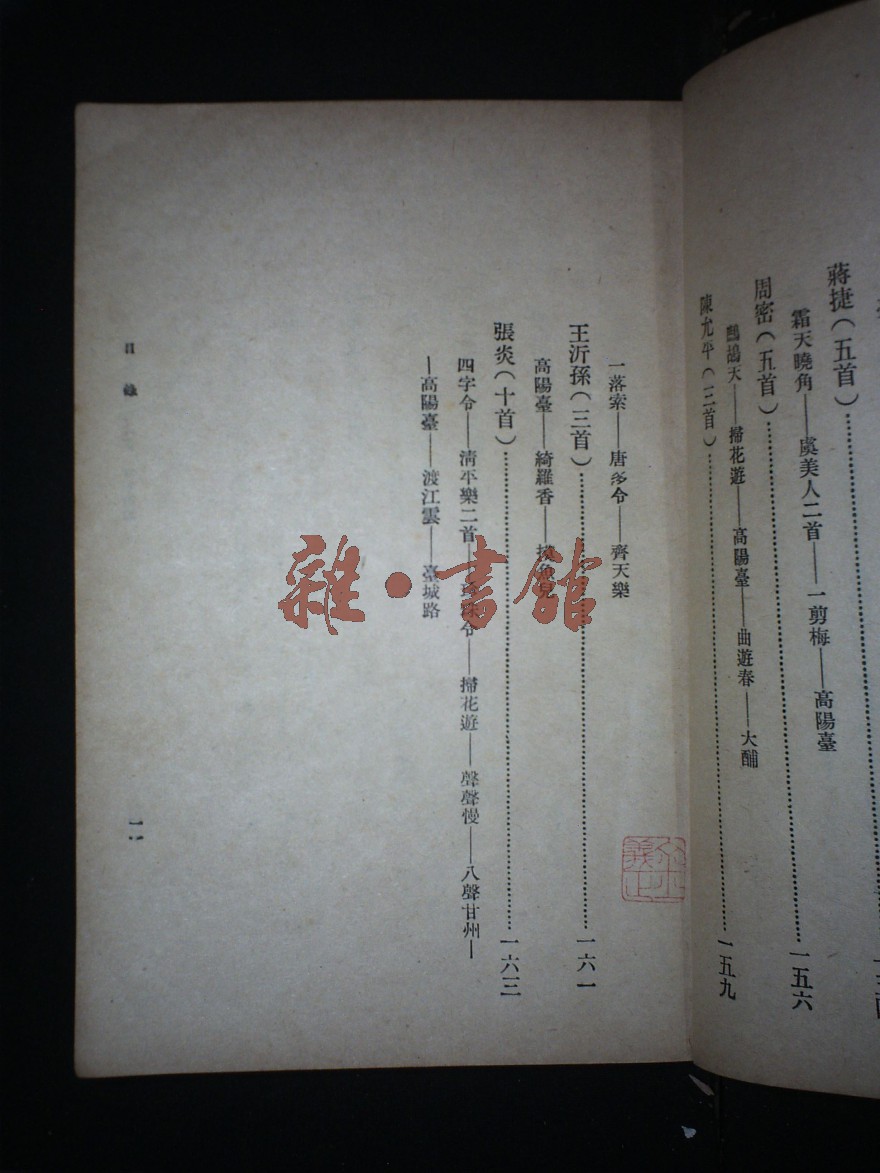 蔣捷(五首)
霜天曉角——虞美人二首——一剪梅——高陽臺
周密(五首)……一五六
鷓鴣天——掃花遊——高陽臺——曲遊春——大酺
陳允平(三首)……一五九
一落索——唐多令——齊天樂
王沂孫(三首)……一六一
高陽臺——綺羅香——摸魚兒
張炎(十首)……一六三
四字令——清平樂二首——珍珠令——掃花遊——聲聲慢——八聲甘州—
—高陽臺——渡江雲——臺城路
目錄
一一
雜·書館